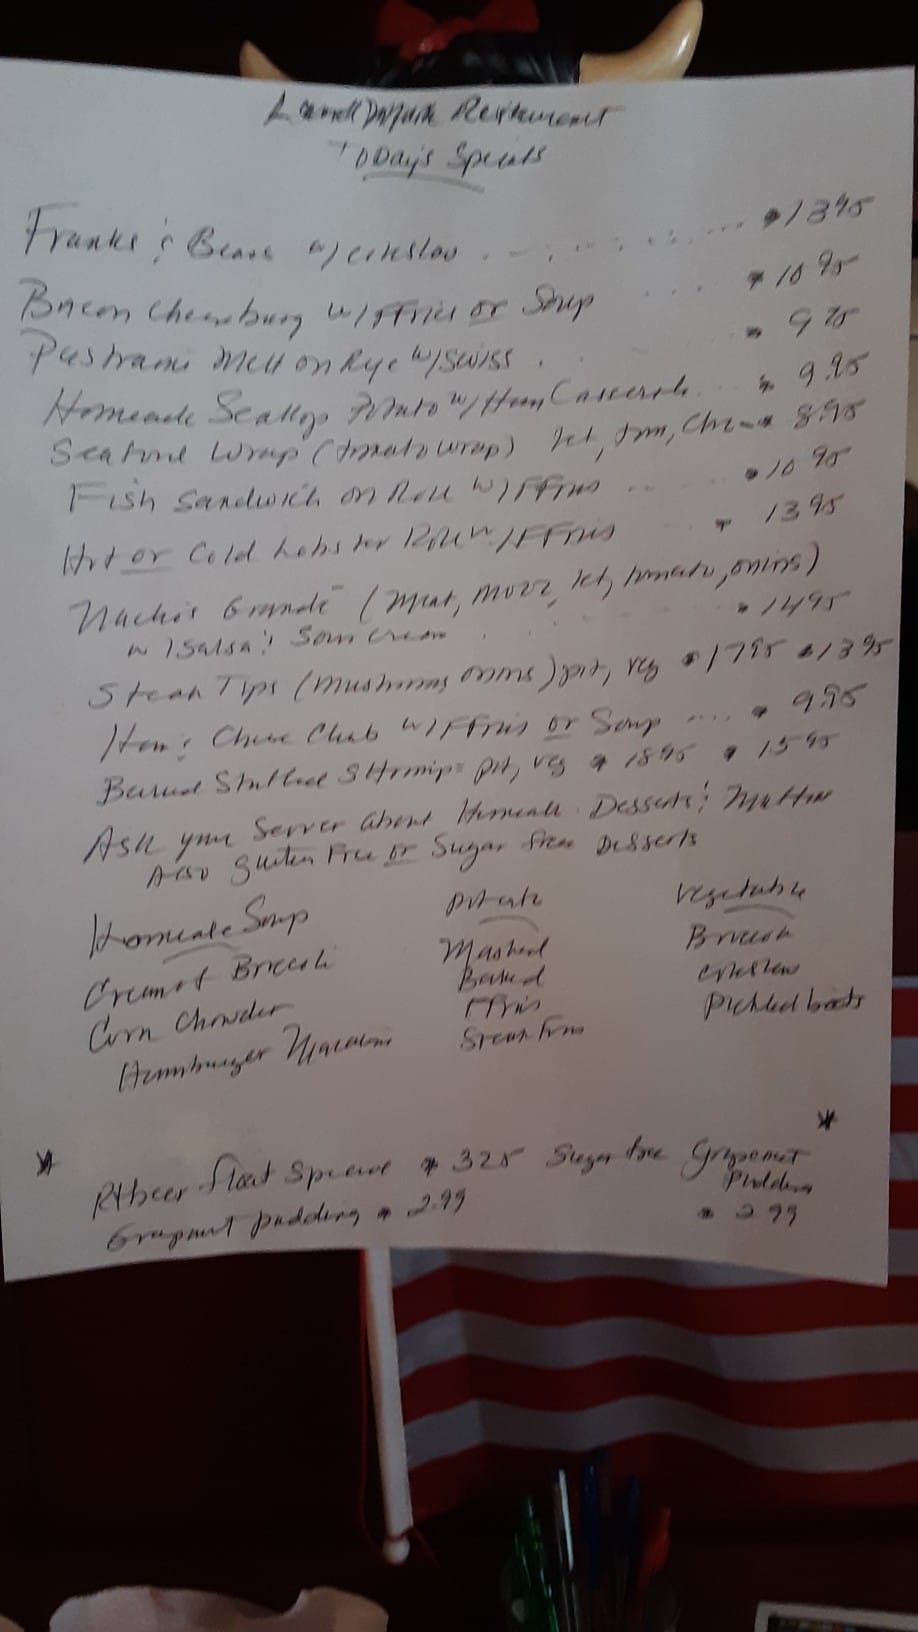 Landmark Restaurant
Today's Specials
Franks & Beans w/coleslaw $13.95
Bacon Cheeseburg w/FFries or Soup $10.95
Pastrami Melt on Rye w/Swiss 9
Homeade Scallop Potato w/Ham Casserole $9.95
Seafood Wrap (tomato wrap) let, tom, Chz $8.95
Fish Sandwich on Roll w/FFries $10.95
Hot or Cold Lobster Roll w/FFries $13.95
Nacho's Grandé (meat, mozz, let, tomato, onins)
w/Salsa & Sour cream $14.95
Steak Tips (mushrooms onions) pot, veg $17.95 $13.95
Ham & Cheese Club w/FFries or Soup $9.95
Baked Stuffed Shrimp pot, veg $18.95 $15.95
Ask your Server about Homeade Desserts & Muffins
Also gluten Free or Sugar free Desserts
Homeade Soup
Cream of Broccoli
Corn Chowder
Hamburger Macaroni
Potato
Mashed
Baked
FFries
Steak Fries
Vegetable
Broccoli
coleslaw
Pickled beets
* *
Rtbeer float Special $3.25 Sugar free Grapenut
Pudding
Grapenut pudding $2.99 $2.99